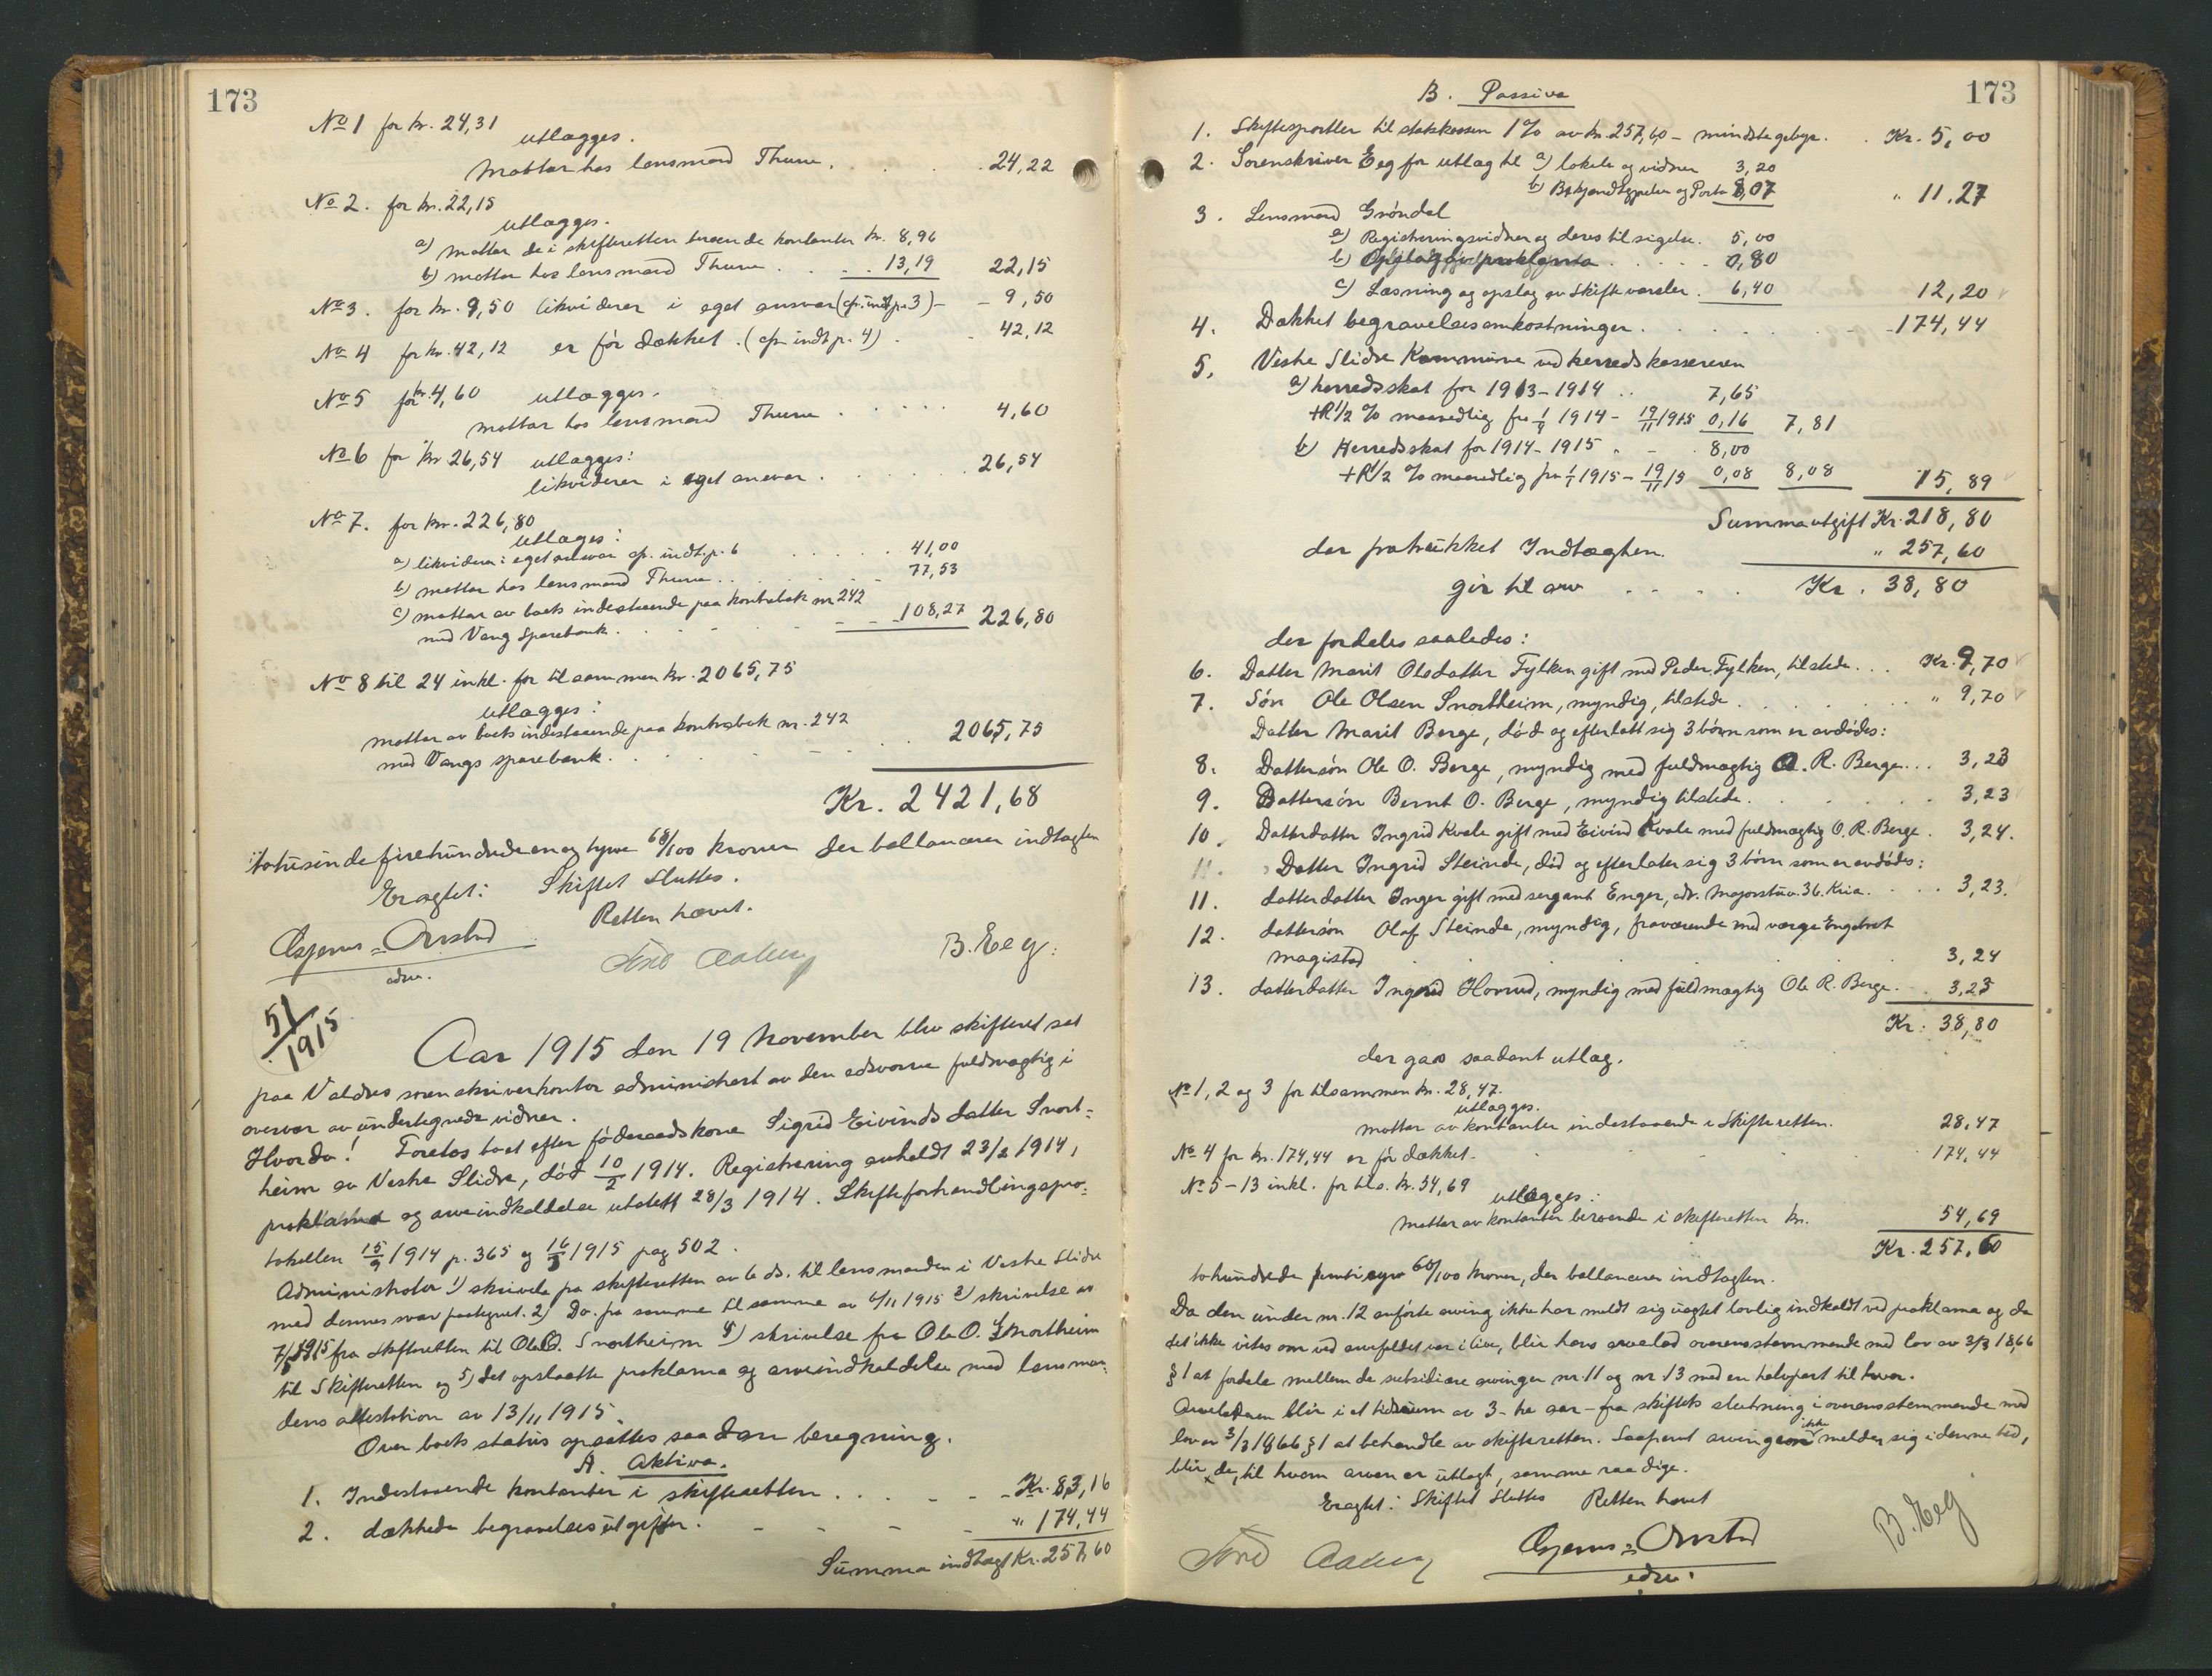 173
No 1 for kr. 24,31
utlægges.
Mottar hos lensmand Thune. 24,22
No 2. for kr. 22,15
utlægges.
a) mottar de i skifteretten beroende kontanter kr. 8,96
b) mottar hos lensmand Thune . . . . 13,19 22,15
No 3. for kr. 9,50 likviderer i eget ansvar (cfr. indt. p. 3) - - 9,50
No 4 for kr. 42,12 er før dækket. (cfr. indt. p. 4) . . 42,12
No 5 for kr. 4,60 utlægges.
mottar hos lensmand Thune . . . . . 4,60
No 6 for kr. 26,54 utlægges:
likviderer i eget ansvar . . . . . 26,54
No 7. for kr. 226,80
utlæges:
a) likviderer i eget ansvar cfr. indt. p. 6 . . . . . 41,00
b) mottar hos lensmand Thune . . . . . 77,53
c) mottar av boets indestaaende paa kontrabok nr 242
med Vang Sparebank. . . . . 108,27 226,80
No 8 til 24 inkl. for tilsammen kr. 2065,75
utlægges:
mottar av boets indestaaende paa kontrabok nr. 242
med Vangs sparebank. . . . . . 2065,75
Kr. 2421,68
totusindefirehundredeenogtyve 68/100 kroner der ballancerer indtægten
Eragtet: Skiftet sluttes.
Retten hævet.
B. Eeg.
edsv.
51/1915
Aar 1915 den 19 November blev skifteret sat
paa Valdres sorenskriverkontor administrert av den edsvorne fuldmægtig i
overvær av undertegnede vidner.
Hvorda! Foretos boet efter føderaadskone Sigrid Eivindsdatter Snort=
heim av Vestre Slidre, død 10/2 1914. Registrering avholdt 23/2 1914,
proklama og arveindkaldelse utstedt 28/3 1914. Skifteforhandlingspro=
tokollen 15/9 1914 p. 365 og 16/3 1915 pag 502.
Administrator 1) skrivelse fra skifteretten av 6 ds. til lensmanden i Vestre Slidre
med dennes svar paategnet. 2) Do. fra samme til samme av 6/11 1915 3) skrivelse av
7/8 1915 fra skifteretten til Ole O. Snortheim 4) skrivelse fra Ole O. Snortheim
til Skifteretten og 5) det opslaatte proklama og arveindkaldelse med lensman=
dens attestation av 13/11 1915.
Over boets status opsættes saadan beregning.
A. Aktiva.
1. Indestaaende kontanter i skifteretten . . . - - - Kr. 83,16
2. dækkede begravelsesutgifter. - - - - " 174,44
Summa indtægt Kr. 257,60
173
B. Passiva
1. Skiftesportler til statskassen 1% av kr. 257,60 - mindste gebyr. . Kr. 5,00
2. Sorenskriver Eeg for utlæg til a) lokale og vidner 3,20
b) Bekjendtgjørelse og Porto 8,07 " 11,27
3. Lensmand Grøndal
a) Registreringsvidner og deres tilsigelse. 5,00
b) Opslag av proklama . . . . . 0,80
c) Læsning og opslag av Skiftevarsler. 6,40 12,20
4. Dækket begravelsesomkostninger. . . . . . - -174,44
5. Vestre Slidre Kommune ved herredskassereren
a) herredsskat for 1913-1914 .. 7,65
+R 1/2 % maanedlig fra 1/7 1914 - 19/11 1915 0,16 7,81
b) Herredsskat for 1914-1915 . - . 8,00
+R 1/2 % maanedlig fra 1/1 1915 - 19/11 15 0,08 8,08 15,89
Summa utgift Kr. 218,80
der fratrukket Indtægten. " 257,60
gir til arv . . . . Kr. 38,80
der fordeles saaledes:
6. Datter Marit Olsdatter Fylken gift med Peder Fylken, tilstede . . . Kr. 9,70
7. Søn Ole Olsen Snortheim, myndig, tilstede . . . . . . " 9,70
Datter Marit Berge, død og efterlatt sig 3 børn som er avdødes:
8. Dattersøn Ole O. Berge, myndig med fuldmægtig O. R. Berge . . . 3,23
9. Dattersøn Bernt O. Berge, myndig tilstede. . . . . . 3,23
10. Datterdatter Ingrid Kvale gift med Eivind Kvale med fuldmægtig O. R. Berge . 3,24.
11. Datter Ingrid Steinde, død og efterlater sig 3 børn som er avdødes:
11. datterdatter Inger gift med sergeant Enger, adr. Majorstuv. 36. Kria. . . . 3,23.
12. dattersøn Olaf Steinde, myndig, fraværende med værge Engebret
Magistad . . . . . 3,24
13. datterdatter Ingrid Hovrud, myndig med fuldmægtig Ole R. Berge. - . 3,23
Kr. 38,80
der gaas saadant utlæg.
No 1, 2 og 3 for tilsammen kr. 28,47.
utlægges.
mottar av kontanter indestaaende i Skifteretten. 28,47
No 4 for kr. 174,44 er før dækket. . . . . 174,44
No 5-13 inkl. for tils. kr. 54,69
utlægges:
mottar av kontanter beroende i skifteretten kr. 54,69
Kr. 257,60
tohundrede femtisyv 60/100 kroner, der ballancerer indtægten.
Da den under nr. 12 anførte arving ikke har meldt sig uagtet lovlig indkaldt ved proklama og da
det ikke vites om ved arvefaldet var i live, blir hans arvelod overensstemmende med lov av 3/3 1866
§ 1 at fordele mellem de subsidiære arvinger nr. 11 og nr. 13 med en halvpart til hver.
Arveloddene blir i et tidsrum av 3 - tre aar - fra skiftets slutning i overensstemmende med
lov av 3/3 1866 § 1 at behandle av skifteretten. Saafremt arvingen ikke melder sig i denne tid,
blir de, til hvem arven er utlagt, samme raadige.
Eragtet: Skiftet sluttes Retten hævet
B. Eeg
edsv.